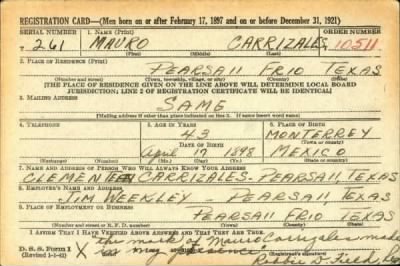 REGISTRATION CARD—(Men born on or after February 17, 1897 and on or before December 31, 1921)
SERIAL NUMBER 1. NAME (Print) ORDER NUMBER
261 MAURO CARRIZALES 10511
(First) (Middle) (Last)
2. PLACE OF RESIDENCE (Print)
PEARSAll FRIO TEXAS
(Number and street) (Town, township, village, or city) (County) (State)
[THE PLACE OF RESIDENCE GIVEN ON THE LINE ABOVE WILL DETERMINE LOCAL BOARD
JURISDICTION; LINE 2 OF REGISTRATION CERTIFICATE WILL BE IDENTICAL]
3. MAILING ADDRESS
SAME
[Mailing address if other than place indicated on line 2. If same insert word same]
4. TELEPHONE 5. AGE IN YEARS 6. PLACE OF BIRTH
43 MONTERREY
DATE OF BIRTH (Town or county)
April 17 1898 MEXICO
(Exchange) (Number) (Mo.) (Day) (Yr.) (State or country)
7. NAME AND ADDRESS OF PERSON WHO WILL ALWAYS KNOW YOUR ADDRESS
CARRIZALES-PEARSAll, TEXAS
8. EMPLOYER'S NAME AND ADDRESS
JIM WEEKLEY PEARSAll, TEXAS
9. PLACE OF EMPLOYMENT OR BUSINESS
PEARSAll FRIO TEXAS
(Number and street or R. F. D. number) (Town) (County) (State)
I AFFIRM THAT I HAVE VERIFIED ABOVE ANSWERS AND THAT THEY ARE TRUE.
The mark of Mauro Carrizales made
D. S. S. Form 1 X in my presence
(Revised 1-1-42) (Registrant's signature)